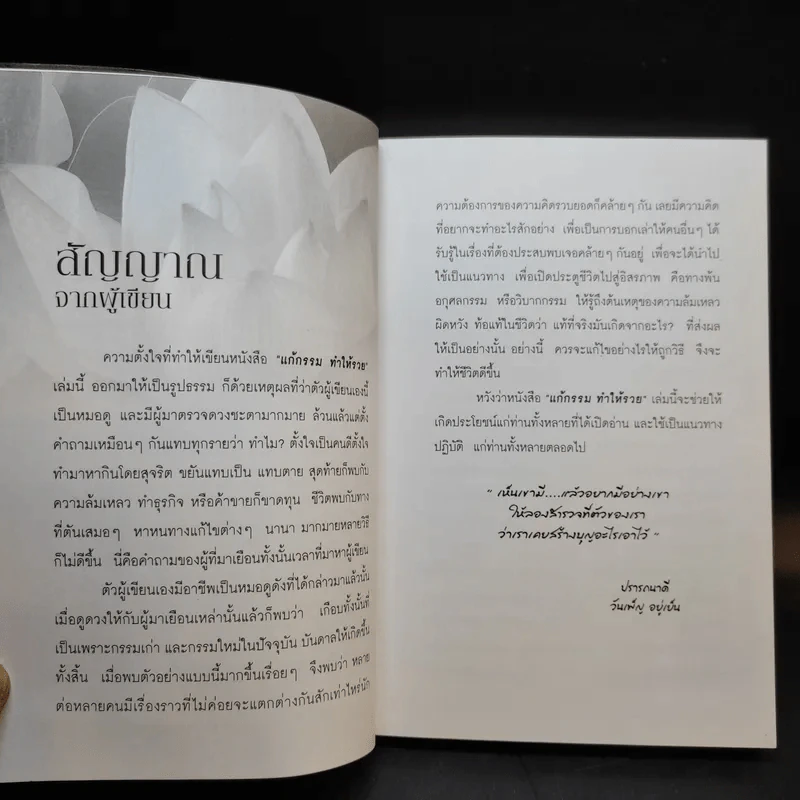 สัญญาณ
จากผู้เขียน
ความตั้งใจที่ทำให้เขียนหนังสือ "แก้กรรม ทำให้รวย"
เล่มนี้ ออกมาให้เป็นรูปธรรม ก็ด้วยเหตุผลที่ว่าตัวผู้เขียนเองนี้
เป็นหมอดู และมีผู้มาตรวจดวงชะตามากมาย ล้วนแล้วแต่ตั้ง
คำถามเหมือนๆ กันแทบทุกรายว่า ทำไม? ตั้งใจเป็นคนดีตั้งใจ
ทำมาหากินโดยสุจริต ขยันแทบเป็น แทบตาย สุดท้ายก็พบกับ
ความล้มเหลว ทำธุรกิจ หรือค้าขายก็ขาดทุน ชีวิตพบกับทาง
ที่ตันเสมอๆ หาหนทางแก้ไขต่างๆ นานา มากมายหลายวิธี
ก็ไม่ดีขึ้น นี่คือคำถามของผู้ที่มาเยือนทั้งนั้นเวลาที่มาหาผู้เขียน
ตัวผู้เขียนเองมีอาชีพเป็นหมอดูดังที่ได้กล่าวมาแล้วนั้น
เมื่อดูดวงให้กับผู้มาเยือนเหล่านั้นแล้วก็พบว่า เกือบทั้งนั้นที่
เป็นเพราะกรรมเก่า และกรรมใหม่ในปัจจุบัน บันดาลให้เกิดขึ้น
ทั้งสิ้น เมื่อพบตัวอย่างแบบนี้มากขึ้นเรื่อยๆ จึงพบว่า หลาย
ต่อหลายคนมีเรื่องราวที่ไม่ค่อยจะแตกต่างกันสักเท่าไหร่นัก
ความต้องการของความคิดรวบยอดก็คล้ายๆ กัน เลยมีความคิด
ที่อยากจะทำอะไรสักอย่าง เพื่อเป็นการบอกเล่าให้คนอื่นๆ ได้
รับรู้ในเรื่องที่ต้องประสบพบเจอคล้ายๆ กันอยู่ เพื่อจะได้นำไป
ใช้เป็นแนวทาง เพื่อเปิดประตูชีวิตไปสู่อิสรภาพ คือทางพ้น
อกุศลกรรม หรือวิบากกรรม ให้รู้ถึงต้นเหตุของความล้มเหลว
ผิดหวัง ท้อแท้ในชีวิตว่า แท้ที่จริงมันเกิดจากอะไร? ที่ส่งผล
ให้เป็นอย่างนั้น อย่างนี้ ควรจะแก้ไขอย่างไรให้ถูกวิธี จึงจะ
ทำให้ชีวิตดีขึ้น
หวังว่าหนังสือ "แก้กรรม ทำให้รวย" เล่มนี้จะช่วยให้
เกิดประโยชน์แก่ท่านทั้งหลายที่ได้เปิดอ่าน และใช้เป็นแนวทาง
ปฏิบัติ แก่ท่านทั้งหลายตลอดไป
" เห็นเขามี....แล้วอยากมีอย่างเขา
ให้ลองสำรวจที่ตัวของเรา
ว่าเราเคยสร้างบุญอะไรเอาไว้ "
ปรารถนาดี
วันเพ็ญ อยู่เย็น